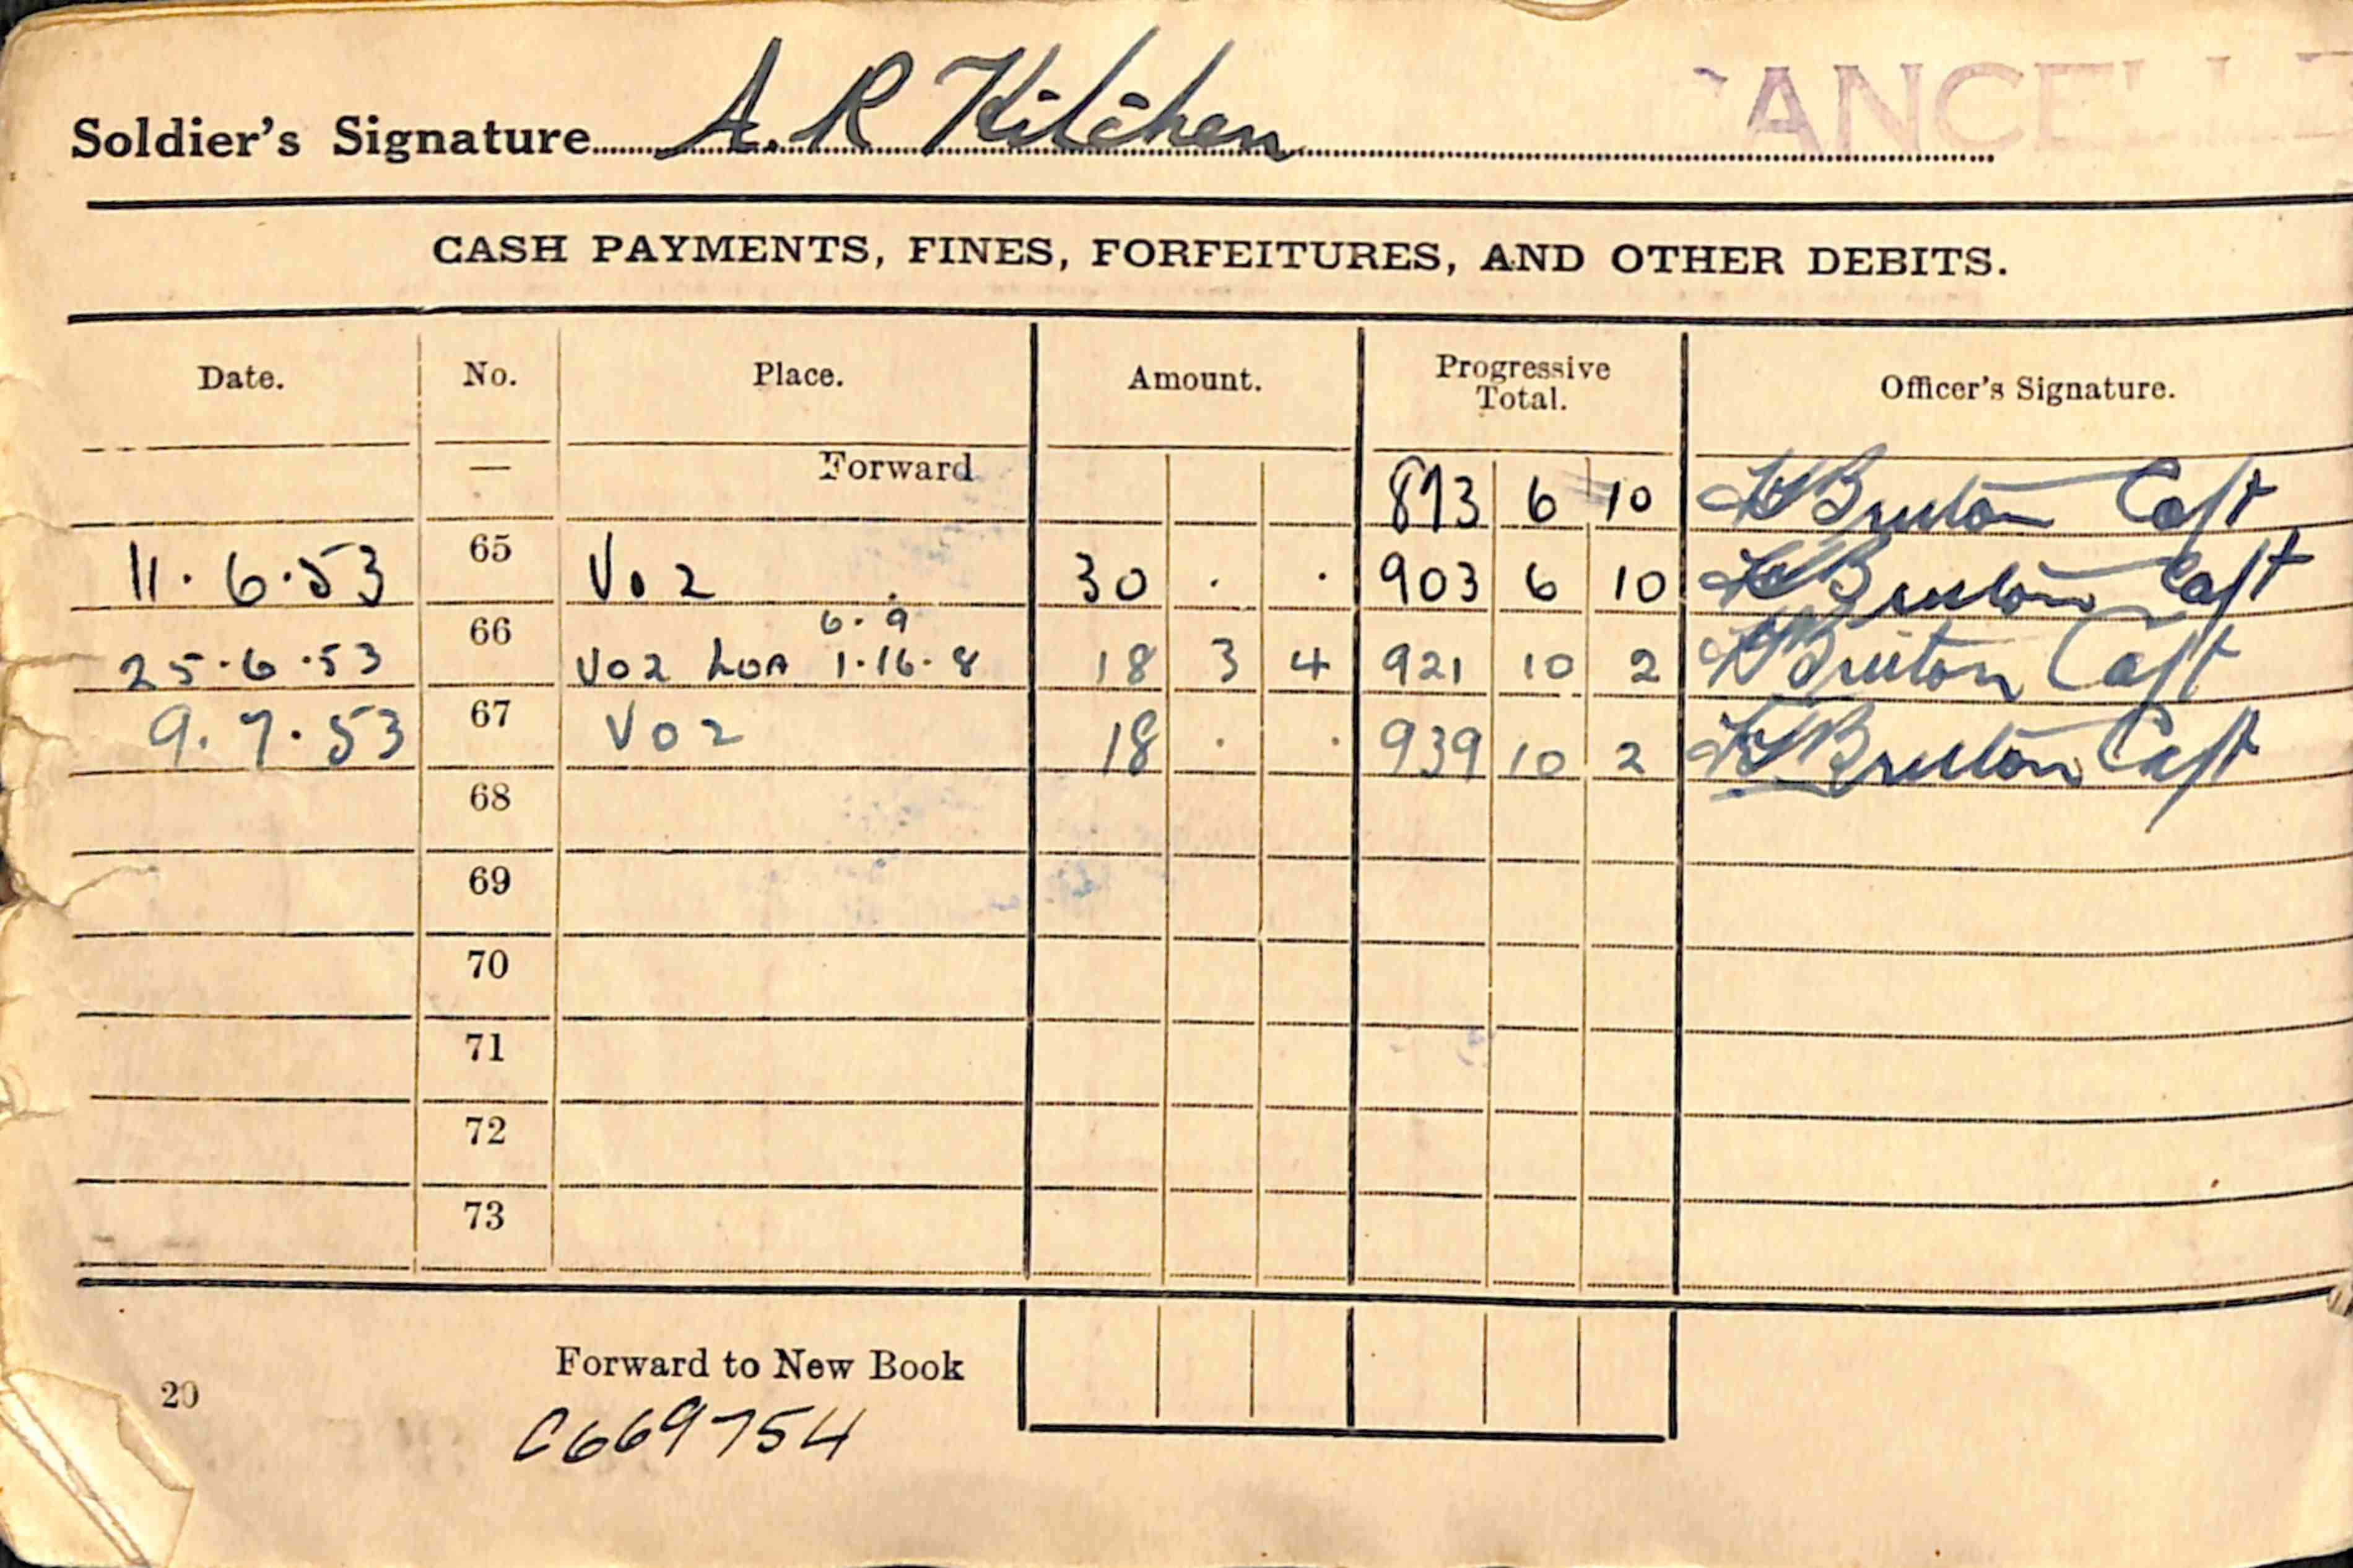 Soldier's Signature A. R Kitchen
CANCELLED
CASH PAYMENTS, FINES, FORFEITURES, AND OTHER DEBITS.
Date. No. Place. Amount. Progressive Total. Officer's Signature.
— Forward 873 6 10 Bruton Capt
11. 6. 53 65 Vo 2 30 . . 903 6 10 Bruton Capt
6. 9
25. 6. 53 66 Vo 2 LOA 1. 16. 8 18 3 4 921 10 2 Bruton Capt
9. 7. 53 67 Vo 2 18 . . 939 10 2 Bruton Capt
68
69
70
71
72
73
Forward to New Book
20
C669754